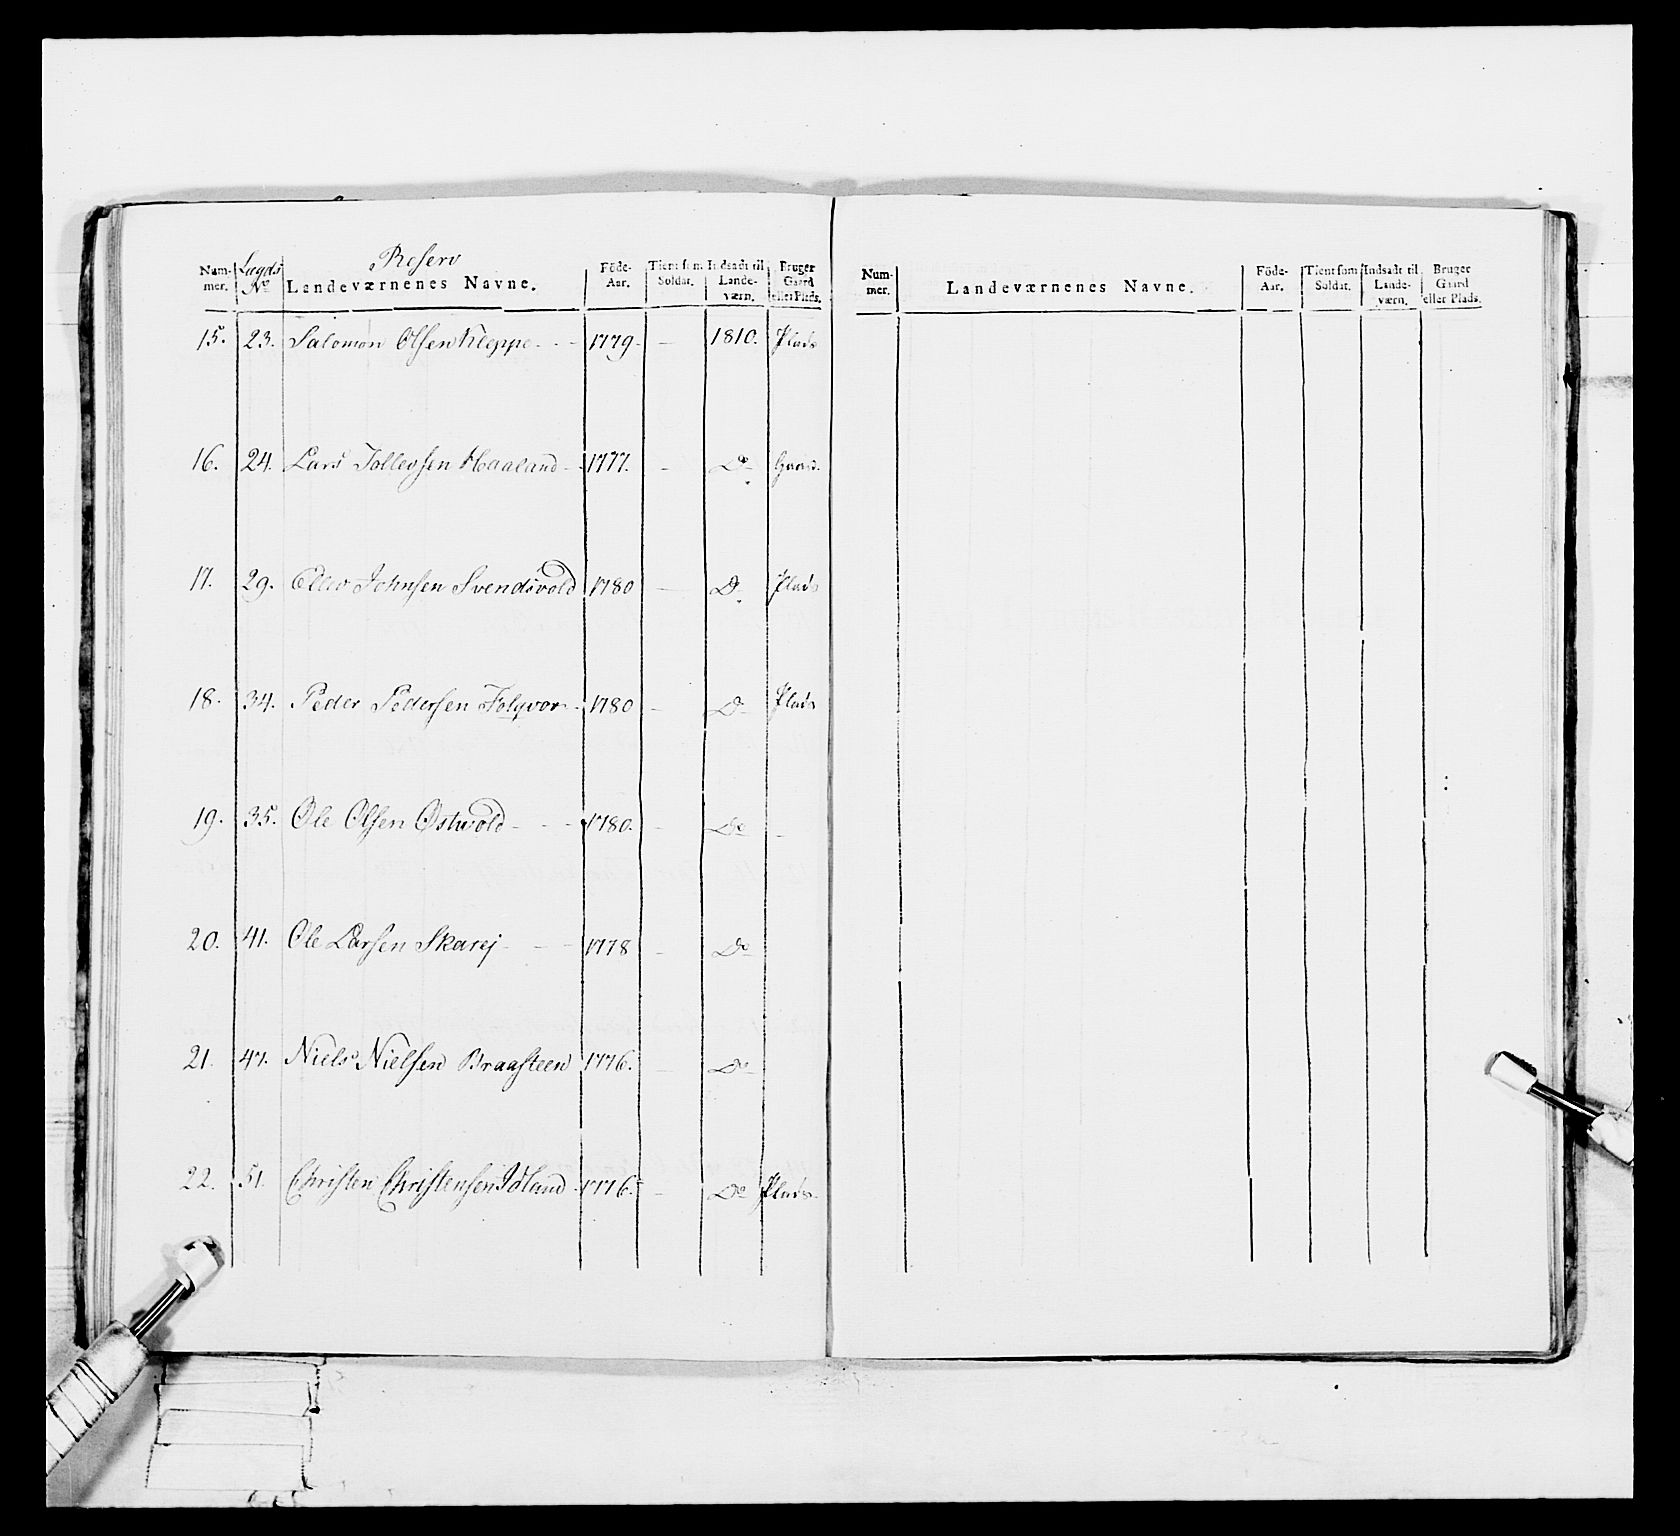 Reserv
Num-mer. Lægds No Landeværnenes Navne. Föde-Aar. Tient som Soldat. Indsadt til Lande-værn. Bruger Gaard eller Plads.
15. 23. Salomon Olsen Kleppe - - 1779 - — 1810. Plads
16. 24. Lars Tollevsen Haaland - 1777. - Do Gaard.
17. 29. Ellev Johnsen Svendsvold 1780 — Do Plads
18. 34. Peder Pedersen Folqvor - 1780 - Do Plads
19. 35. Ole Olsen Østwold - - - 1780. - Do -
20. 41. Ole Larsen Skarej - - - 1778 - Do
21. 47. Niels Nielsen Braasteen 1776. - Do
22. 51. Christen Christensen Idland - 1776. - Do Plads
Num-mer. Landeværnenes Navne. Föde-Aar. Tient som Soldat. Indsadt til Lande-værn. Bruger Gaard eller Plads.